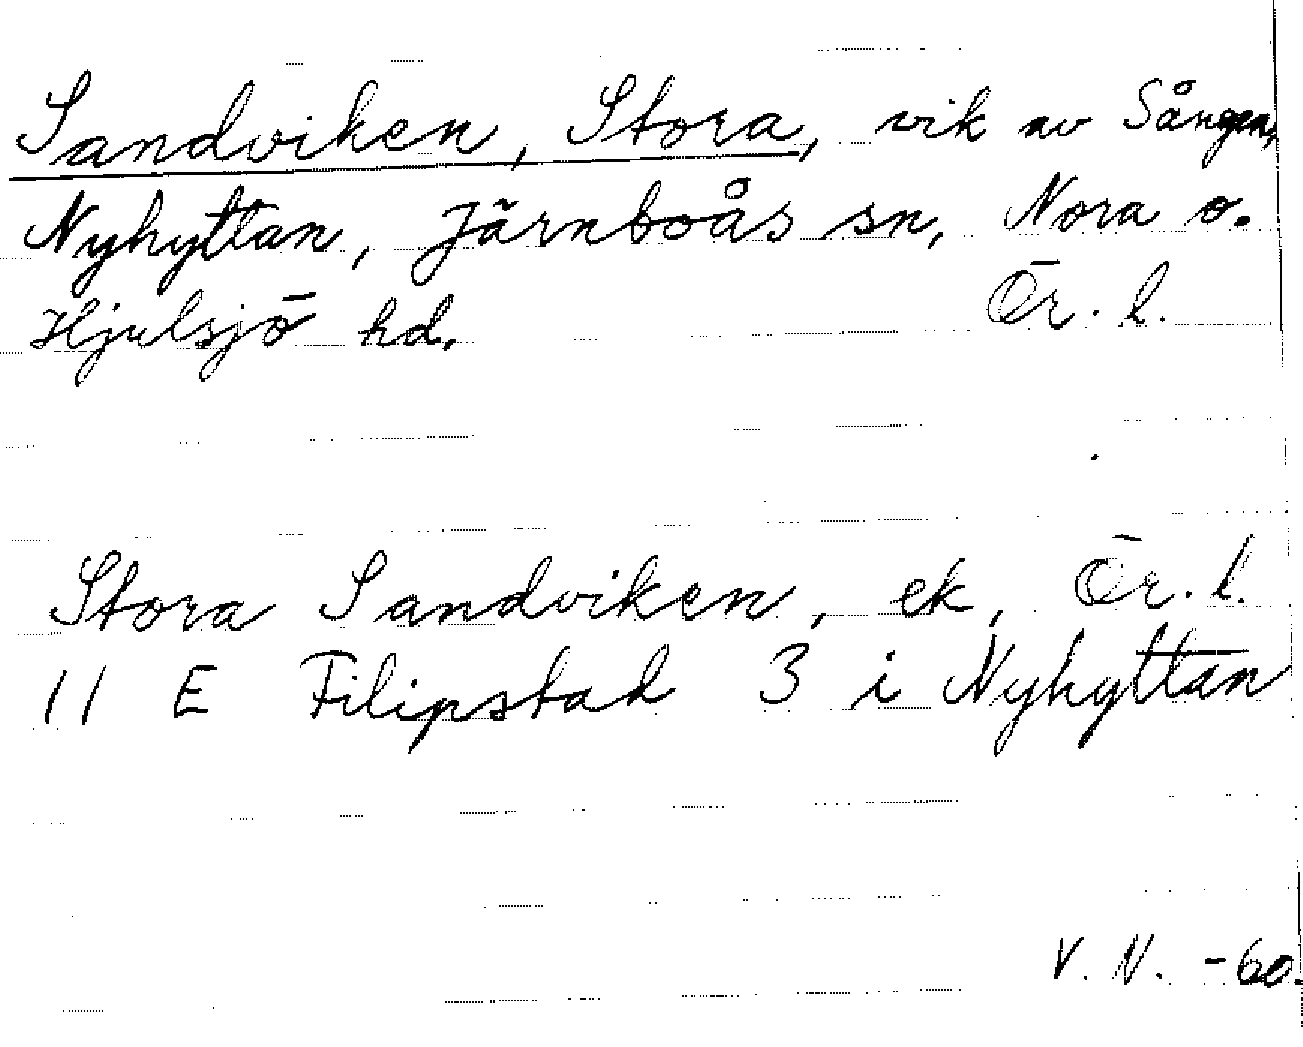 Sandviken, Stora, vik av Sången,
Nyhyttan, Järnboås sn, Nora o.
Hjulsjö hd. Ör. l.
Stora Sandviken, ek, Ör. l.
11 E Filipstad 3 i Nyhyttan
V. N. -60.